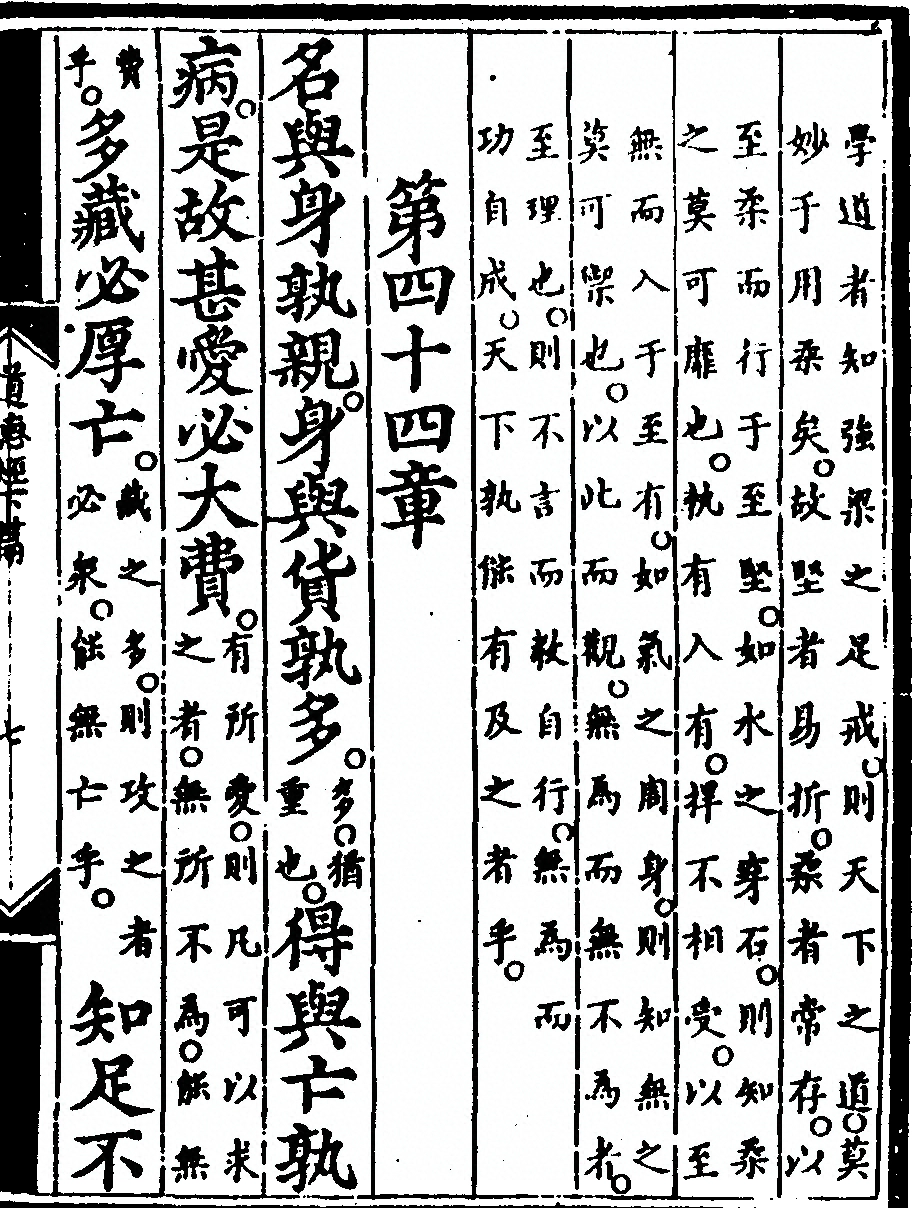 學道者知強梁之足戒。則天下之道。莫
妙于用柔矣。故堅者易折。柔者常存。以
至柔而行于至堅。如水之穿石。則知柔
之莫可靡也。執有入有。捍不相受。以至
無而入于至有。如氣之周身。則知無之
莫可禦也。以此而觀。無為而無不為者。
至理也。則不言而教自行。無為而
功自成。天下孰能有及之者乎。
第四十四章
名與身孰親。身與貨孰多。多。猶重也。得與亡孰
病。是故甚愛必大費。有所愛。則凡可以求之者。無所不為。能無
費乎。多藏必厚亡。藏之多。則攻之者必眾。能無亡乎。知足不
道德經下篇 七